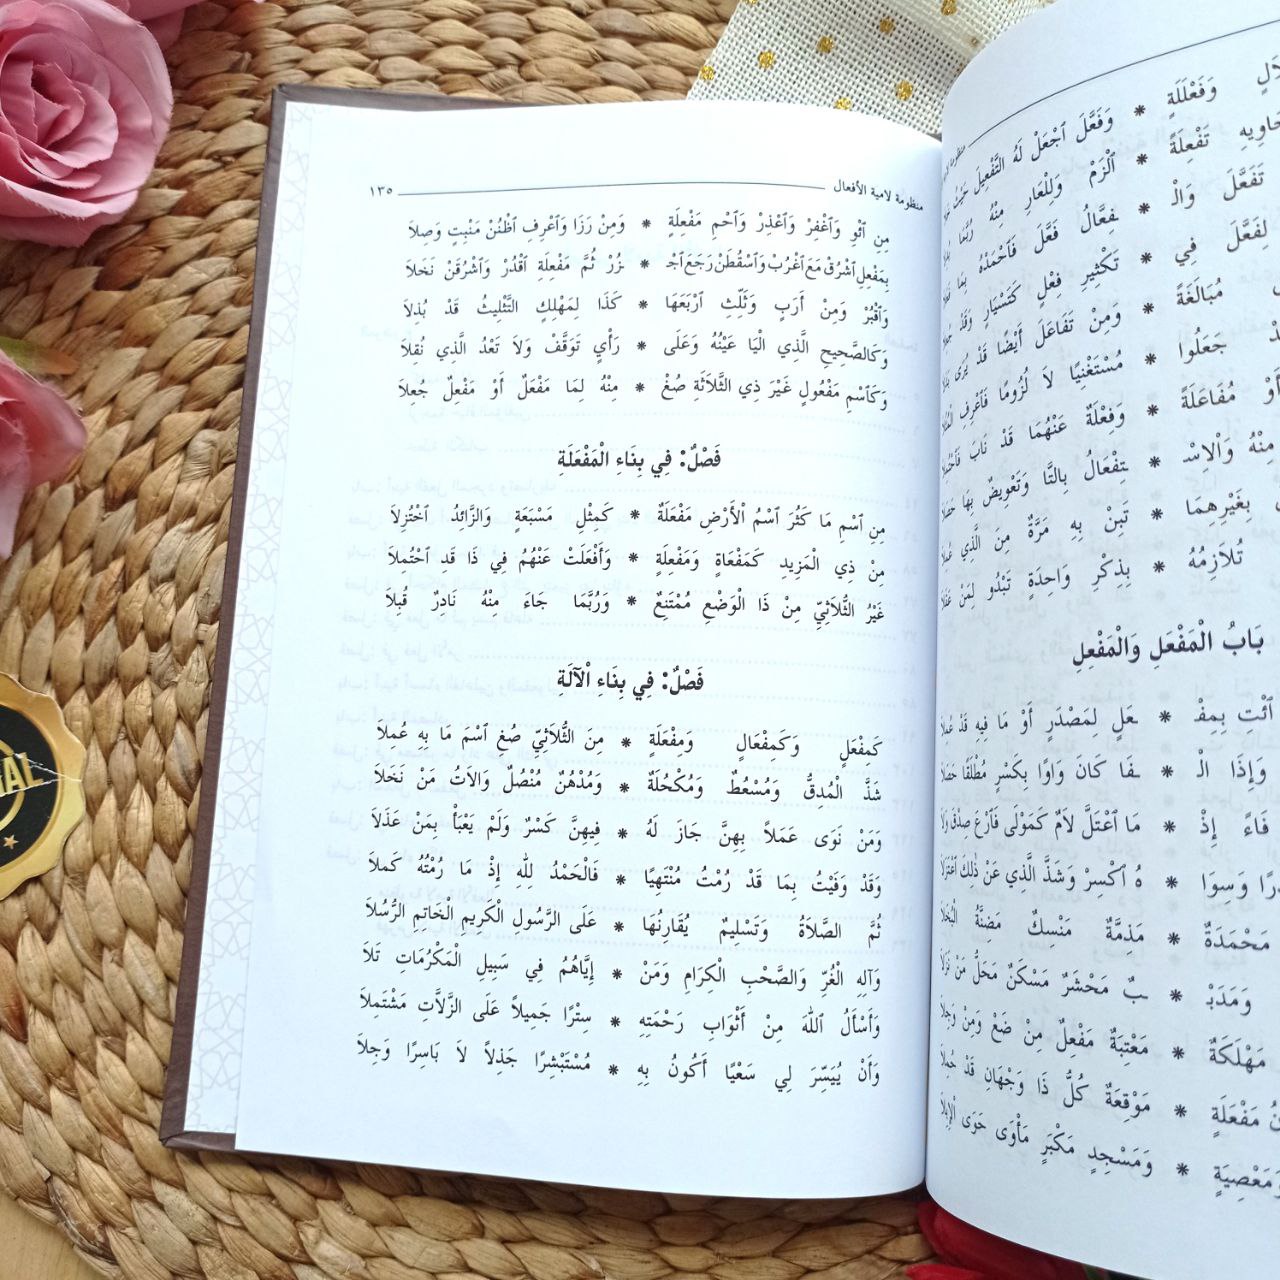 منظومة لامية الأفعال ١٣٥
مِنِ ٱئْوِ وَٱغْفِرْ وَٱعْذِرْ وَٱحْمِ مَفْعِلَةٍ * وَمِنْ رَزَا وَٱعْرِفِ ٱظْنُنْ مَنْبِتٍ وَصِلَا
بِمَفْعِلٍ ٱشْرُقْ مَعَ ٱغْرُبْ وَٱسْقُطَنْ رَجَعَ ٱجْـ * ـزُرْ ثُمَّ مَفْعِلَةِ ٱقْدُرْ وَٱشْرُقَنْ نَخَلَا
وَٱقْبُرْ وَمِنْ أَرَبٍ وَثَلِّثِ ٱرْبَعَهَا * كَذَا لِمَهْلِكٍ التَّثْلِيثُ قَدْ بُذِلَا
وَكَالصَّحِيحِ الَّذِي الْيَا عَيْنُهُ وَعَلَى * رَأْيٍ تَوَقَّفْ وَلَا تَعْدُ الَّذِي نُقِلَا
وَكَٱسْمِ مَفْعُولٍ غَيْرَ ذِي الثَّلَاثَةِ صُغْ * مِنْهُ لِمَا مَفْعَلٌ أَوْ مَفْعِلٌ جُعِلَا
فَصْلٌ: فِي بِنَاءِ الْمَفْعَلَةِ
مِنِ ٱسْمِ مَا كَثُرَ ٱسْمُ الْأَرْضِ مَفْعَلَةٌ * كَمِثْلِ مَسْبَعَةٍ وَالزَّائِدُ اخْتُزِلَا
مِنْ ذِي الْمَزِيدِ كَمَفْعَاةٍ وَمَفْعِلَةٍ * وَأَفْعَلَتْ عَنْهُمُ فِي ذَا قَدِ ٱحْتُمِلَا
غَيْرُ الثُّلَاثِيِّ مِنْ ذَا الْوَضْعِ مُمْتَنِعٌ * وَرُبَّمَا جَاءَ مِنْهُ نَادِرٌ قُبِلَا
فَصْلٌ: فِي بِنَاءِ الْآلَةِ
كَمِفْعَلٍ وَكَمِفْعَالٍ وَمِفْعَلَةٍ * مِنَ الثُّلَاثِيِّ صُغِ ٱسْمَ مَا بِهِ عُمِلَا
شَذَّ الْمُدِقُّ وَمُسْعُطٌ وَمُكْحُلَةٌ * وَمُدْهُنٌ مُنْصُلٌ وَالْآتُ مَنْ نَخَلَا
وَمَنْ نَوَى عَمَلًا بِهِنَّ جَازَ لَهُ * فِيهِنَّ كَسْرٌ وَلَمْ يَعْبَأْ بِمَنْ عَذَلَا
وَقَدْ وَفَيْتُ بِمَا قَدْ رُمْتُ مُنْتَهِيًا * فَالْحَمْدُ لِلّٰهِ إِذْ مَا رُمْتُهُ كَمَلَا
ثُمَّ الصَّلَاةُ وَتَسْلِيمٌ يُقَارِنُهَا * عَلَى الرَّسُولِ الْكَرِيمِ الْخَاتِمِ الرُّسُلَا
وَآلِهِ الْغُرِّ وَالصَّحْبِ الْكِرَامِ وَمَنْ * إِيَّاهُمُ فِي سَبِيلِ الْمَكْرُمَاتِ تَلَا
وَأَسْأَلُ ٱللّٰهَ مِنْ أَثْوَابِ رَحْمَتِهِ * سِتْرًا جَمِيلًا عَلَى الزَّلَّاتِ مَشْتَمِلَا
وَأَنْ يُيَسِّرَ لِي سَعْيًا أَكُونُ بِهِ * مُسْتَبْشِرًا جَذِلًا لَا بَاسِرًا وَجِلَا
وَفَعْلَلَةٍ * وَفَعَّلَ ٱجْعَلْ لَهُ التَّفْعِيلَ
تَفْعِلَةً * ٱلْزَمْ وَلِلْعَارِ مِنْهُ رُبَّمَا
تَفَعَّلَ وَالْـ * ـفِعَّالُ فَعَّلَ فَٱحْمَدْهُ بِمَا
لِفَعَّلَ فِي * تَكْثِيرِ فِعْلٍ كَتَسْيَارٍ وَقَدْ
مُبَالَغَةً * وَمِنْ تَفَاعَلَ أَيْضًا قَدْ يُرَى
جَعَلُوا * مُسْتَغْنِيًا لَا لُزُومًا فَٱعْرِفِ
أَوْ مُفَاعَلَةً * وَفِعْلَةٌ عَنْهُمَا قَدْ نَابَ
مِنْهُ وَالِاسْـ * ـتِفْعَالُ بِالتَّا وَتَعْوِيضٌ بِهَا
بِغَيْرِهِمَا * تَبِنْ بِهِ مَرَّةٌ مِنَ الَّذِي
تُلَازِمُهُ * بِذِكْرِ وَاحِدَةٍ تَبْدُو لِمَنْ
بَابُ الْمَفْعَلِ وَالْمَفْعِلِ
ٱئْتِ بِمِفْـ * ـعَلٍ لِمَصْدَرٍ أَوْ مَا فِيهِ قَدْ عُمِلَا
وَإِذَا الْـ * ـفَا كَانَ وَاوًا بِكَسْرٍ مُطْلَقًا
فَاءً إِذْ * مَا ٱعْتَلَّ لَامٌ كَمَوْلًى فَٱرْعَ صِدْقَ
وَسِوَا * هُ ٱكْسِرْ وَشَذَّ الَّذِي عَنْ ذٰلِكَ ٱعْتَزَلَا
مَحْمَدَةٌ * مَذِمَّةٌ مَنْسِكٌ مَضِنَّةُ الْبُخَلَا
وَمَدَبْـ * ـبٌ مَحْشَرٌ مَسْكَنٌ مَحَلُّ مَنْ نَزَلَا
مَهْلَكَةٌ * مَعْتِبَةٌ مَفْعِلٌ مِنْ ضَعْ وَمِنْ وَجِلَا
مَفْعَلَةٍ * مَوْقِعَةٌ كُلُّ ذَا وَجْهَانِ قَدْ حُمِلَا
وَمَعْصِيَةٍ * وَمَسْجِدٍ مَكْبِرٍ مَأْوَى حَوَى الْإِبِلَا